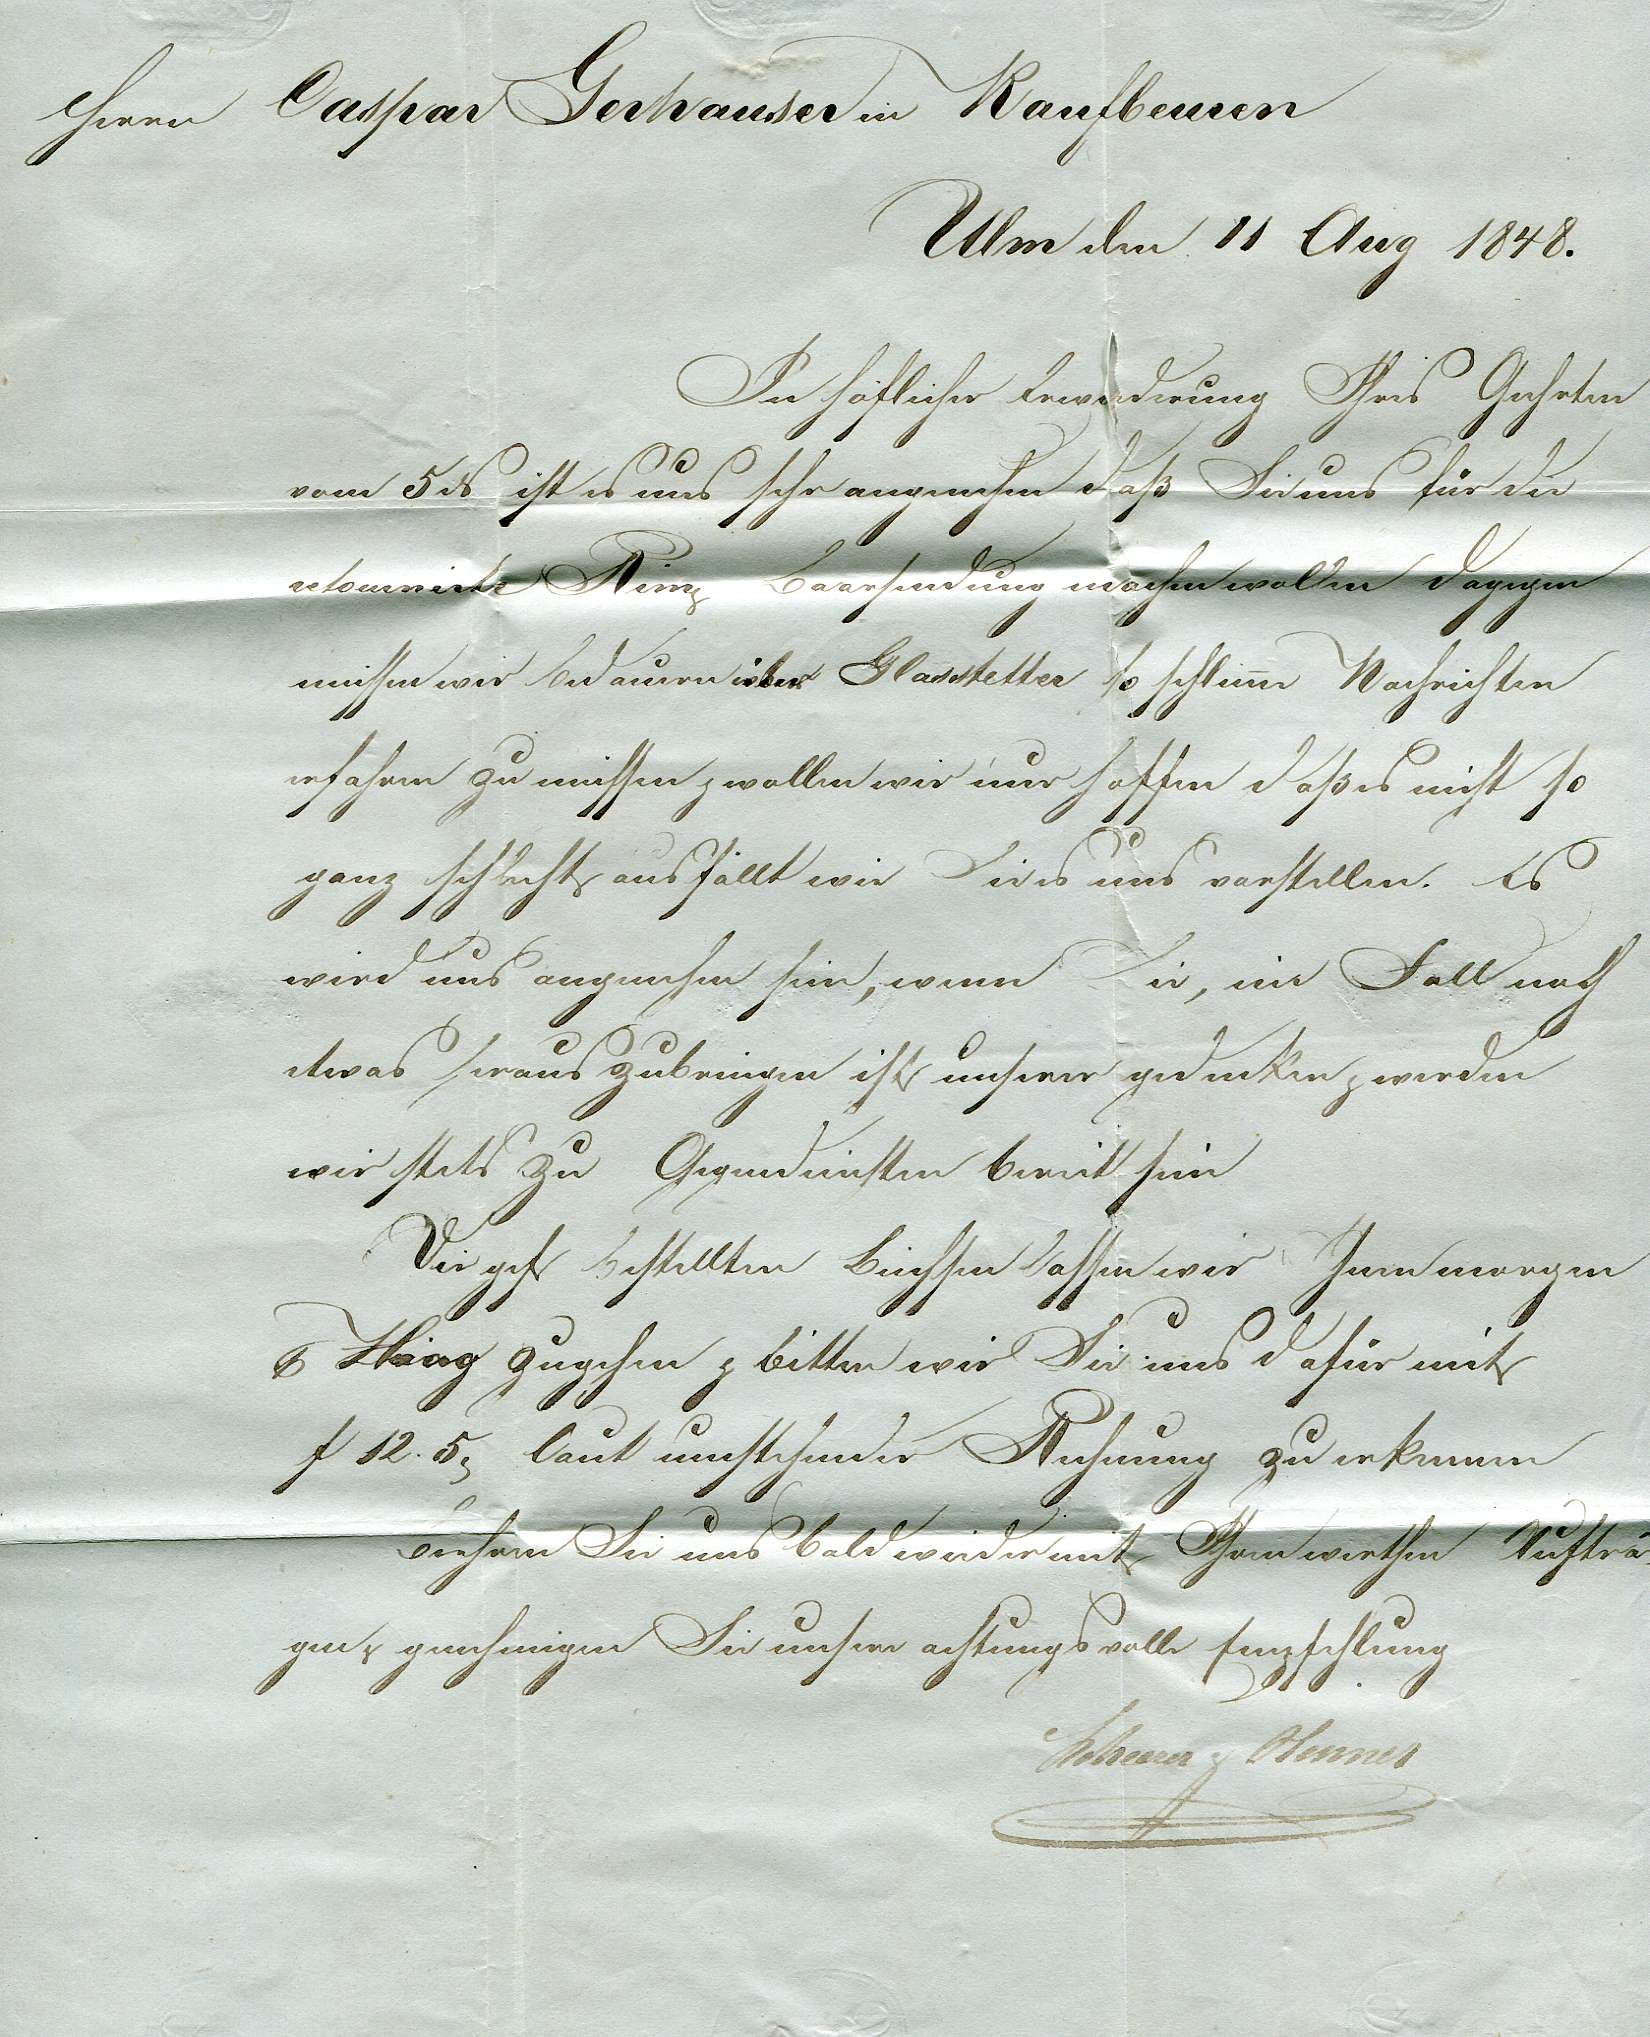 Herrn Caspar Gerhauser in Kaufbeuren
Ulm den 11 Aug 1848.
In höflicher Erwiderung Ihres Geehrten
vom 5 ds ist es uns sehr angenehm daß Sie uns für die
retournirte Baarsendung machen wollen dagegen
müssen wir bedauern über Glasstetter so schlimme Nachrichten
erfahren zu müssen & wollen wir nur hoffen daß es nicht so
ganz schlecht ausfällt wie Sie es uns vorstellen. Es
wird uns angenehm sein, wenn Sie, im Fall noch
etwas herauszubringen ist unserer gedenken & werden
wir stets zu Gegendiensten bereit sein
Die gef bestellten Büchsen lassen wir Ihnen morgen
zugehen & bitten wir Sie uns dafür mit
f 12. 5, laut umstehender Rechnung zu erkennen
Beehren Sie uns bald wieder mit Ihren werthen Aufträ
gen & genehmigen Sie unsere achtungsvolle Empfehlung